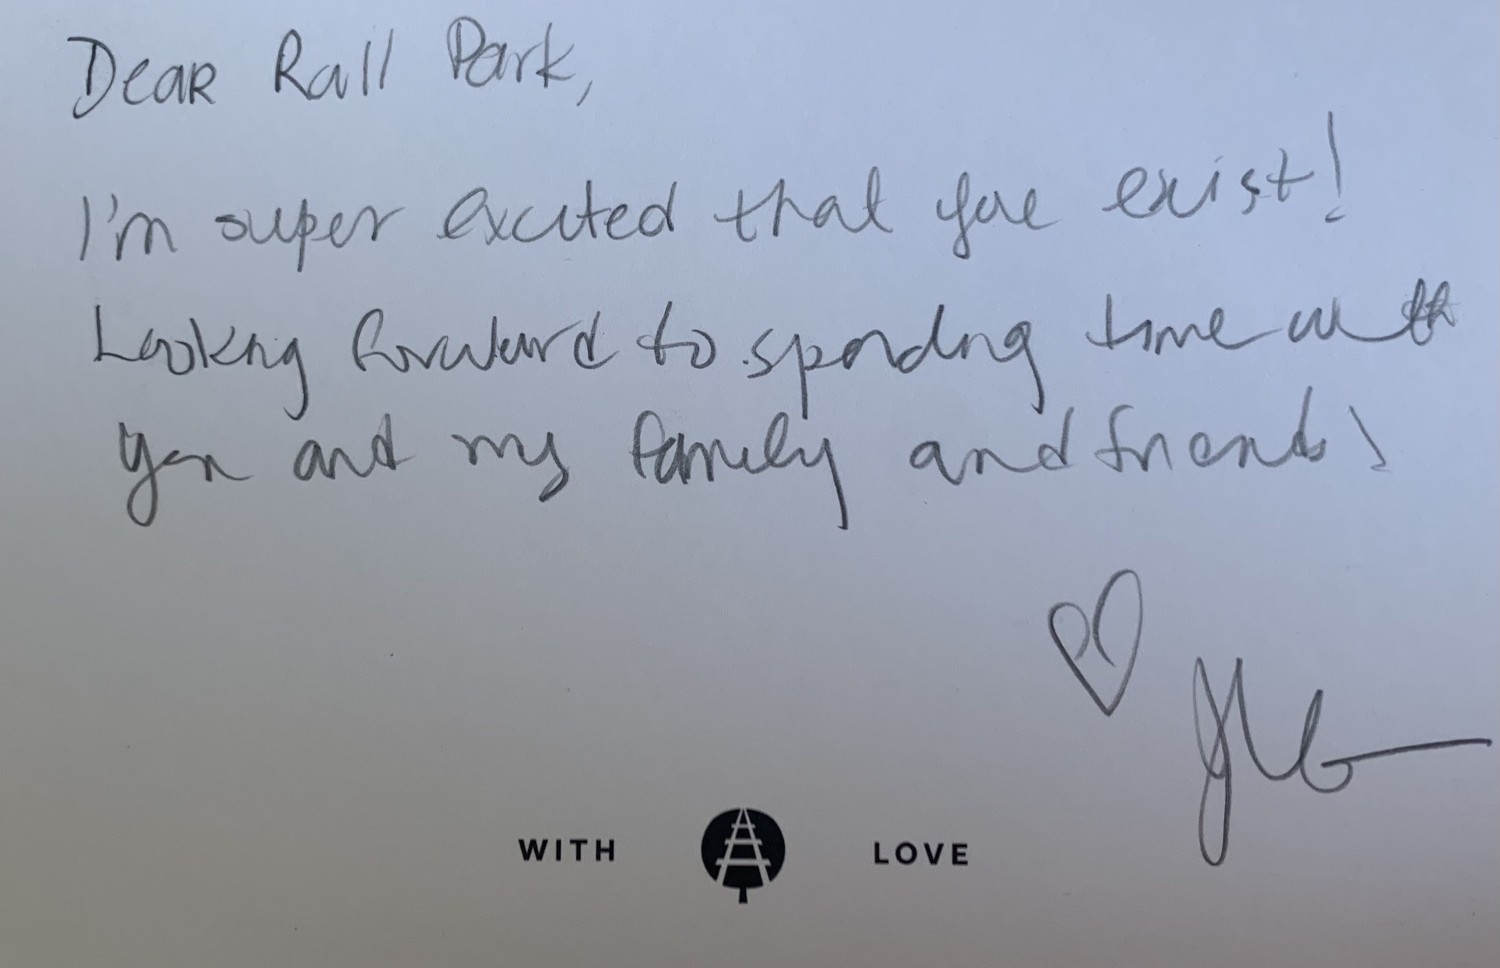 Dear Rail Park,
I'm super excited that you exist!
Looking forward to spending time with
you and my family and friends!
WITH LOVE